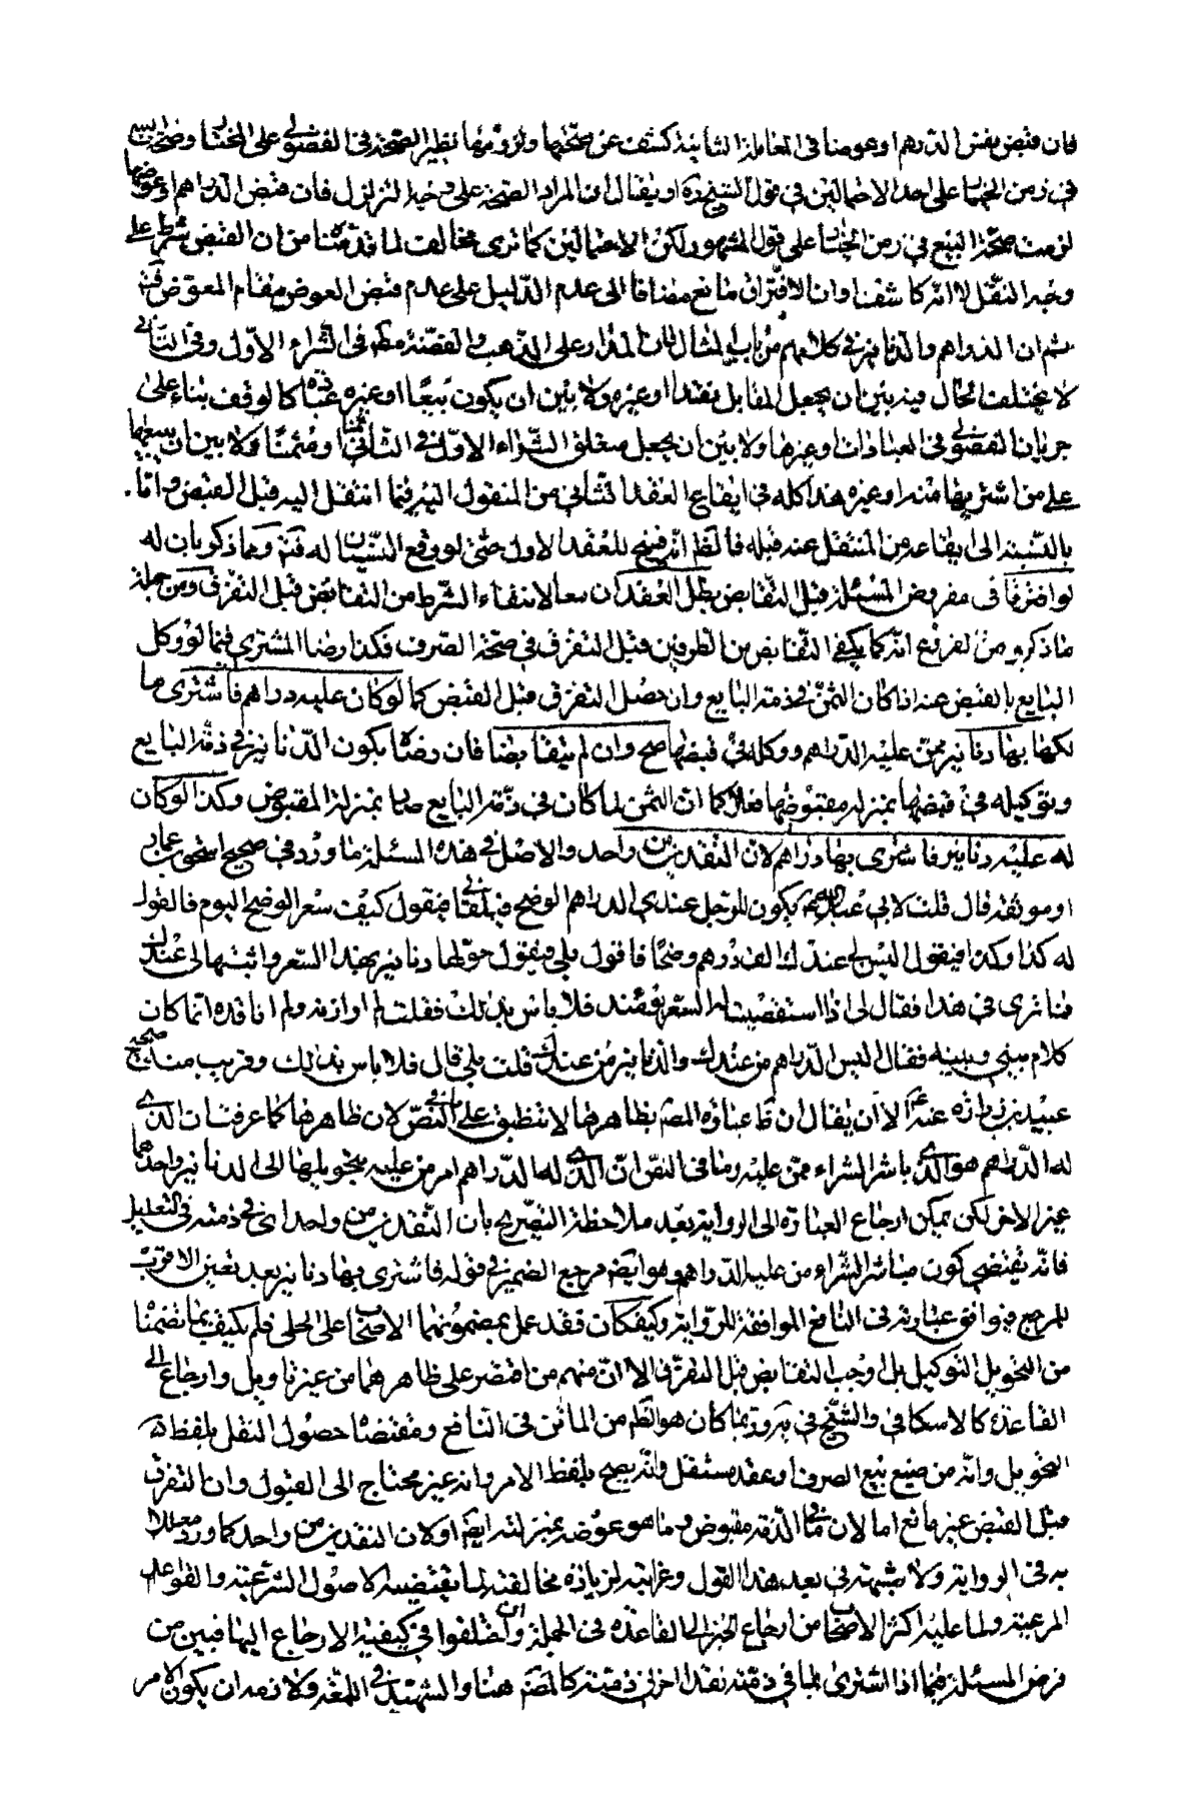 فان قبض نفس الدراهم او عوضها فى المعاملة الثانية كشف عن صحّتها ولزومها نظير الصحة فى الفضولى على المختار وصحة البيع
فى زمن الخيار على احد الاحتمالين فى قول الشيخ ره او يقال ان المراد الصحة على وجه التزلزل فان قبض الدراهم او عوضها
لزمت صحة البيع فى زمن الخيار على قول المشهور لكن الاحتمالين كما ترى مخالف لما قدمناه من ان القبض شرط على
وجه النقل لا انه كاشف وان الافتراق مانع مضافا الى عدم الدليل على عدم قبض العوض مقام المعوض فتم
ثم ان الدراهم والدنانير فى كلامهم من باب المثال لان المدار على الذهب والفضة مطم فى الشراء الاوّل وفى الثانى
لا يختلف الحال فيه بين ان يجعل المقابل نقدا او غيره ولا بين ان يكون بيعًا او غيره عبادة كالوقف بناء على
جريان الفضولى فى العبادات او غيرها ولا بين ان يجعل متعلق الشراء الاوّل فى الثانى ثمنا ومثمنًا ولا بين ان يبيعها
على من اشتريها منه او غيره هذا كله فى ايقاع العقد الثانى من المنقول اليه فيما انتقل اليه قبل القبض واما
بالنسبة الى ايقاعه من المنتقل عنه قبله فالظم انه فسخ للعقد الاول حتى لو وقع النسيان له فتم ومما ذكر بان له
لو افترقا فى مفروض المسئلة قبل التقابض بطل العقدان معا لانتفاء الشرط من التقابض قبل التفرق ومن جملة
ما ذكروه من الفروع انه كما يكفى التقابض من الطرفين قبل التفرق فى صحة الصرف فكذا رضا المشترى فيما لو وكل
البايع بالقبض عنه اذا كان الثمن فى ذمة البايع وان حصل التفرق قبل القبض كما لو كان عليه دراهم فاشترى ما
لكها بها دنانير ممن عليه الدراهم ووكله فى قبضها صح وان لم يتقابضا فان رضاه بكون الدنانير فى ذمة البايع
وتوكيله فى قبضها بمنزلة مقبوضها فعلا كما ان الثمن لما كان فى ذمة البايع صار بمنزلة المقبوض وكذا لو كان
له عليه دنانير فاشترى بها دراهم لان النقدين من واحد والاصل فى هذه المسئلة ما ورد فى صحيح اسحق بن عمار
او موثقه قال قلت لابى عبدالله ع يكون للرجل عندى الدراهم الوضح فيلقانى فيقول كيف سعر الوضح اليوم فاقول
له كذا وكذا فيقول اليس لى عندك الف درهم وضحًا فاقول بلى فيقول حولها دنانير بهذا السعر واثبتها لى عندك
فما ترى فى هذا فقال لى اذا استقصيت له السعر يومئذ فلا باس بذلك فقلت لم اوازنه ولم اناقده انما كان
كلام بينى وبينه فقال اليس الدراهم من عندك والدنانير من عندك قلت بلى قال فلا باس بذلك وقريب منه صحيح
عبيد بن زرارة عنه ع الا ان يقال ان عبارة المصم بظاهرها لا تنطبق على ما فى النص لان ظاهرها كما عرفت ان الذى
له الدراهم هو الذى باشر الشراء ممن عليه وما فى النص ان الذى له الدراهم امر من عليه بتحويلها الى الدنانير واحدهما
غير الاخر لكن يمكن ارجاع العبارة الى الرواية بعد ملاحظة التصريح بان النقدين من واحد اى فى ذمته فى التعليل
فانه يقتضى كون مباشر الشراء من عليه الدراهم وهو ايضم مرجع الضمير فى قوله فاشترى بها دنانير بعد تعين الاقرب
للمرجع فيوافق عبارته فى النافع الموافقة للرواية وكيف كان فقد عمل بمضمونهما الاصحاب الا الحلى فلم يكتف بما تضمنا
من التحويل التوكيل بل اوجب التقابض قبل التفرق الا ان منهم من اقتصر على ظاهرهما من غير تاويل وارجاع الى
القاعدة كالاسكافى والشيخ فى يه وربما كان هو الظم من الماتن فى النافع ومقتضاه حصول النقل بلفظ
التحويل وانه من صيغ بيع الصرف او عقد مستقل وانه يصح بلفظ الامر وانه غير محتاج الى القبول وان التفرق
قبل القبض غير مانع اما لان ما فى الذمة مقبوض وما هو عوضه بمنزلته ايضم او لان النقدين من واحد كما ورد معللا
به فى الرواية ولا شبهة فى بعد هذا القول وغرابته لزيادة مخالفته لما يقتضيه الاصول الشرعية والقواعد
المرعية ولما عليه اكثر الاصحاب من ارجاع الخبر الى القاعدة فى الجملة وان اختلفوا فى كيفية الارجاع اليها فبين من
فرض المسئلة فيما اذا اشترى بما فى ذمته نقدا اخر فى ذمته كالمصم هنا والشهيد فى اللمعة ولا بد ان يكون الامر